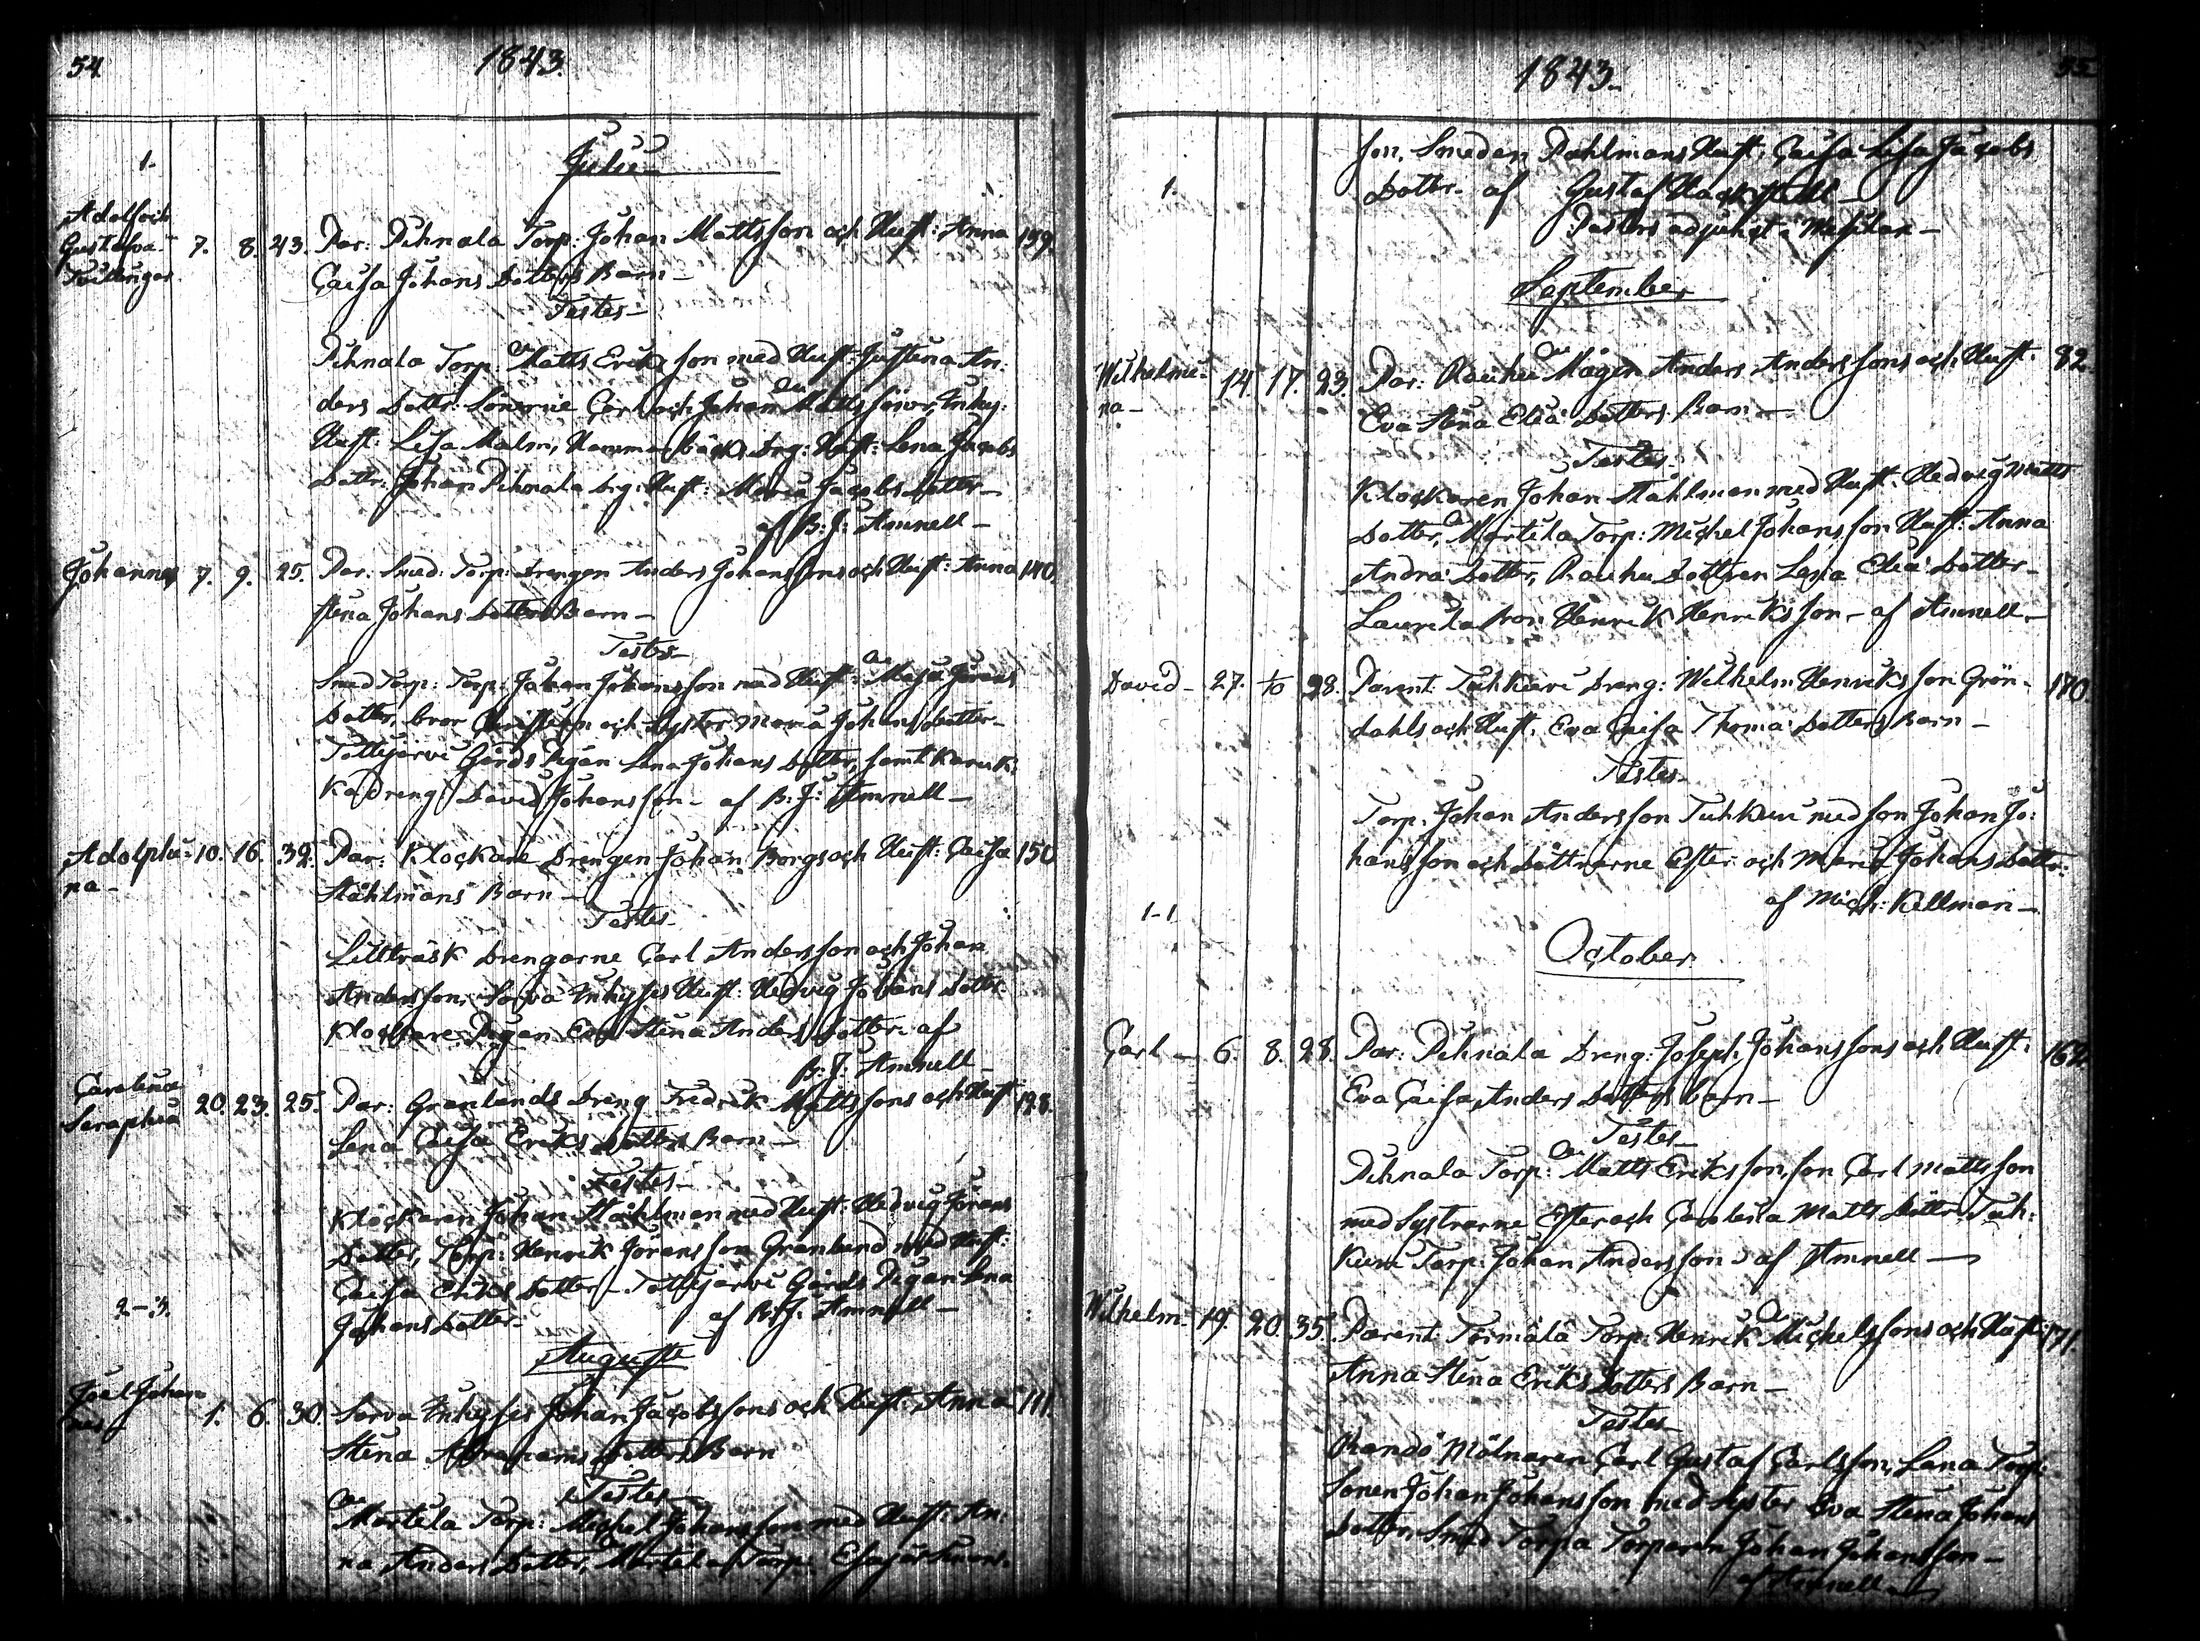 54.
1843.
Julii
1.
Adolf och
Gustafva
Tvillingar
7. 8. 43. Par: Pihnala Torp: Johan Mattssons och Hust: Anna 159.
Caisa Johans Dotters Barn
Testes
Pihnala Torp: Matts Eriksson med Hust: Justina An-
ders Dotter. Sönerne Carl och Johan Matts söner, Inhys:
Hust: Lisa Malm, Hammarbäcks Drg: Hust: Lena Jacobs
Dotter. Johan Pihnala Drg: Hust: Maria Jacobs Dotter
af B: J: Amnell
Johannes 7. 9. 25. Par: Smed: Torp: Drengen Anders Johanssons och Hust: Anna 140.
Stena Johans Dotters Barn
Testes
Smed Torp: Torp: Johan Johansson med Hust: Maja Jörans
Dotter, bror Christian och Syster Maria Johans Dotter
Tottijärvi Gårds Pigan Lena Johans Dotter, samt
ka Dreng: David Johansson af B: J: Amnell
Adolphi-
na 10. 16. 32. Par: Klockare Drengen Johan Borgs och Hust: Caisa 150
Ståhlmans Barn
Testes
Littträsk Drengarne Carl Andersson och Johan
Andersson, Sorva Inhyses Hust: Hedvig Johans Dotter
Klockare Pigan Eva Stina Anders Dotter. af
B: J: Amnell
Carolina
Seraphia 20. 23. 25. Par: Granlunds Dreng Fredrik Mattssons och Hust 128.
Lena Caisa Eriks Dotters Barn
Testes
Klockaren Johan Ståhlman med Hust: Hedvig Jörans
Dotter, Torp: Henrik Jöransson Granlund med Hust:
Caisa Eriks Dotter. Tottijärvi Gårds Pigan Lena
Johans Dotter. af B: J: Amnell
2-3.
Augusti
Joel Johan-
nes 1. 6. 30. Sorva Inhyses Johan Jacobssons och Hust: Anna 111.
Stina Abrahams Dotters Barn
Testes
Mortila Torp: Michel Johansson med Hust: An-
na Anders Dotter, Mortila Torp: Esaias
1843.
55
son, Smeden Dahlmans Hust: Caisa Lisa Jacobs
1. Dotter. af Gustaf Hackstedt
Pastors adjunct i
September
Wilhelmi-
na 14. 17. 23. Par: Rauhu Mågen Anders Anderssons och Hust: 82.
Eva Stina Eliæ Dotters Barn
Testes:
Klockaren Johan Ståhlman med Hust: Hedvig Matts
Dotter, Mortila Torp: Michel Johansson Hust: Anna
Andræ Dotter, Rauhu Dottren Lena Eliæ Dotter
Laurila Bon: Henrik Henriksson af Amnell
David 27. 28. Parent: Tuhkuri Dreng: Wilhelm Henriksson Grön- 170.
dahls och Hust: Eva Caisa Thomæ Dotters Barn
Testes
Torp: Johan Andersson Tuhkuri med son Johan Jo-
hansson och Döttrarne Ester och Maria Johans Dotter:
af Mich: Kellman
1-1.
October
Carl 6. 8. 28. Par: Pihnala Dreng: Joseph Johanssons och Hust: 162.
Eva Caisa Anders Dotters Barn
Testes
Pihnala Torp: Matts Eriksson, son Carl Mattsson
med Systrarne Ester och Carolina Matts Döttr: Tuh-
kuri Torp: Johan Andersson af Amnell
Wilhelm 19. 20. 35. Parent: Törmälä Torp: Henrik Michelssons och Hust: 171.
Anna Stina Eriks Dotters Barn
Testes
Mölnaren Carl Gustaf Carlsson, Lena Torp:
Sonen Johan Johansson med Syster Eva Stina Johans
Dotter, Smed Torpa Torparen Johan Johansson
af Amnell